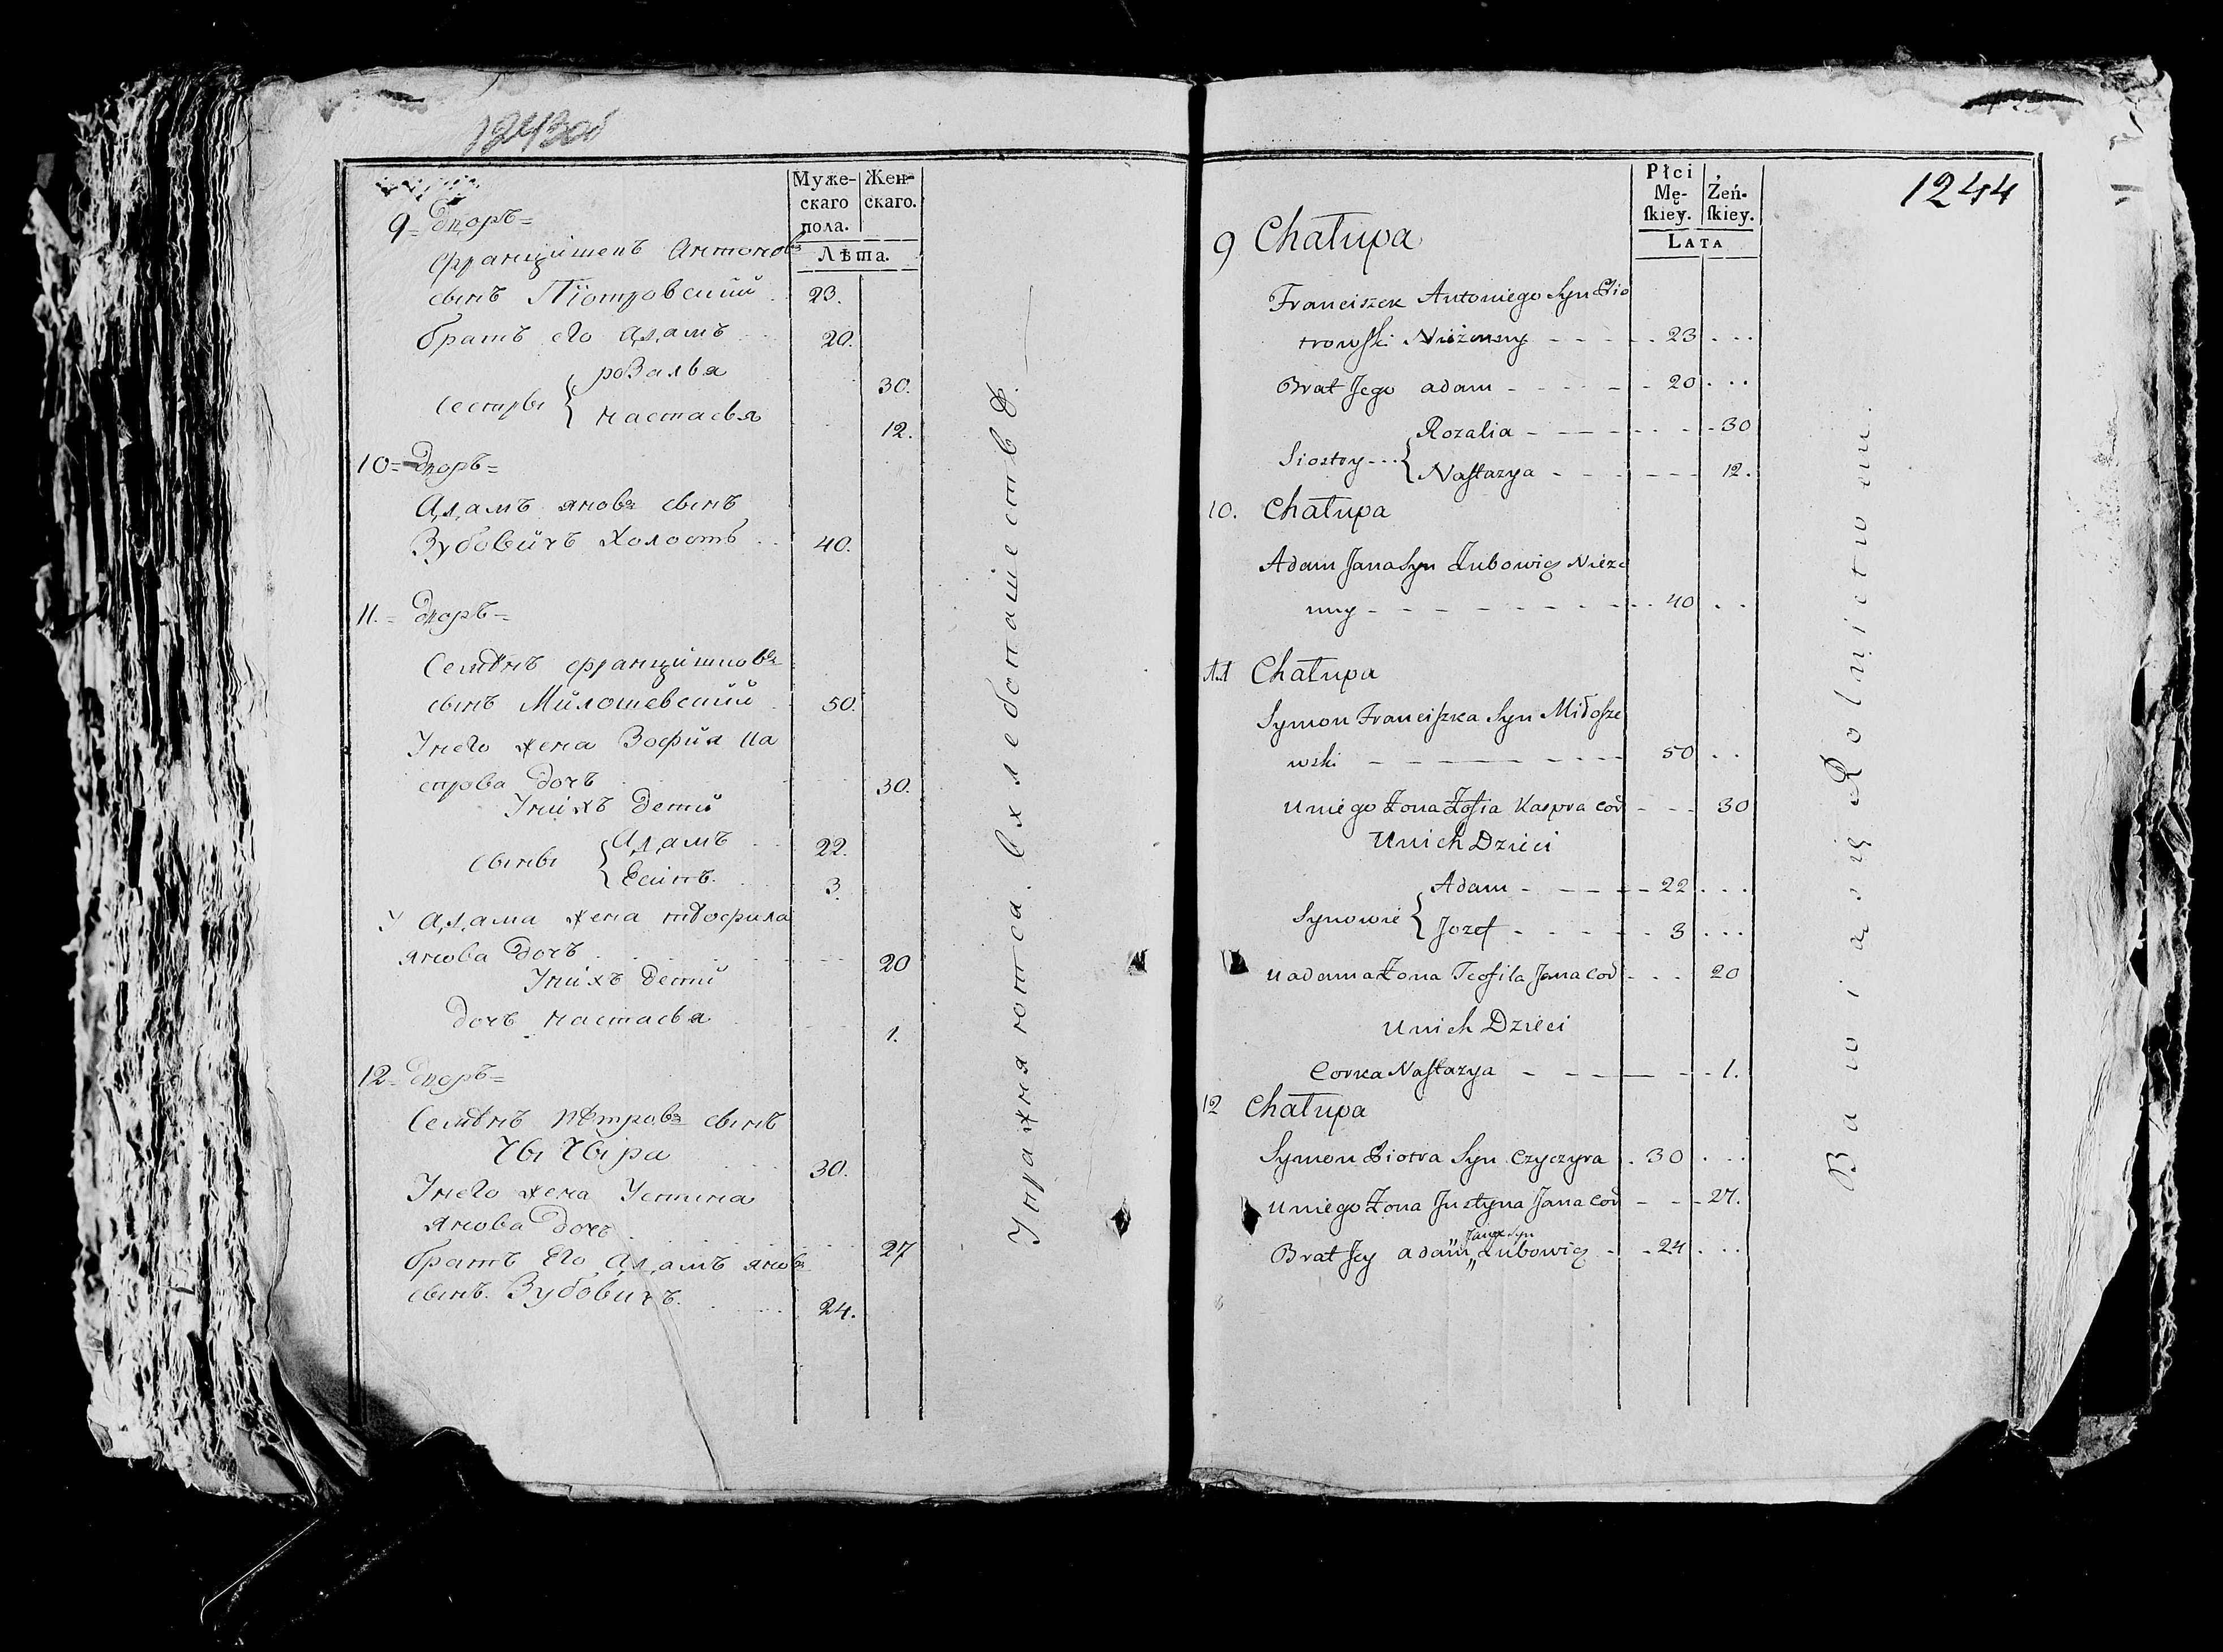 1243об
Муже-
скаго
пола.
Жен-
скаго.
Лѣта.
9= Дворъ=
Францишекъ Антоновъ
сынъ Піотровскій 23.
братъ его Адамъ 20.
сестры { розалья 30.
настасья 12.
10= Дворъ=
Адамъ яновъ сынъ
Зубовичъ Холостъ 40.
11.= Дворъ=
Семѣнъ францишковъ
сынъ Милошевскій 50.
Унего жена Зофия Ка
спрова дочъ 30.
Унихъ дети
сыны { Адамъ 22.
Есипъ. 3.
У Адама жена тѣофила
янова дочъ 20
Унихъ дети
дочъ настасья 1.
12= Дворъ=
Семѣнъ пѣтровъ сынъ
Чычыра 30.
Унего жена Устина
янова дочъ 27
братъ Его Адамъ яновъ
сынъ. Зубовичъ. 24.
Упражняются. Вхлебопашестве.
1244
Płci
Mę-
ſkiey.
Żeń-
ſkiey.
LATA
9 Chałupa
Franciszek Antoniego Syn Pio
trowſki Nieżenny - - - - 23 ...
Brat Jego adam - - - - 20 ...
Siostry --- { Rozalia - - - - 30
Naſtazya - - - - 12.
10. Chałupa
Adam Jana Syn Zubowicz Nieże
nny - - - - 40 ..
11 Chałupa
Symon Franciſzka Syn Miłoſze
wski - - - - 50 ..
U niego Żona Zofia Kaspra cor - - - 30
U nich Dzieci
Synowie { Adam - - - - 22 ...
Jozef - - - - 3 ...
U adama Żona Teofila Jana cor - - - 20
U nich Dzieci
Corka Naſtazya - - - - 1.
12 Chałupa
Symon Piotra Syn Czyczyra . 30 ...
U niego Żona Justyna Jana cor - - - 27.
Jana Syn
Brat Jey adam „ Zubowicz - - 24 ...
Bawią się Rolnictwem.